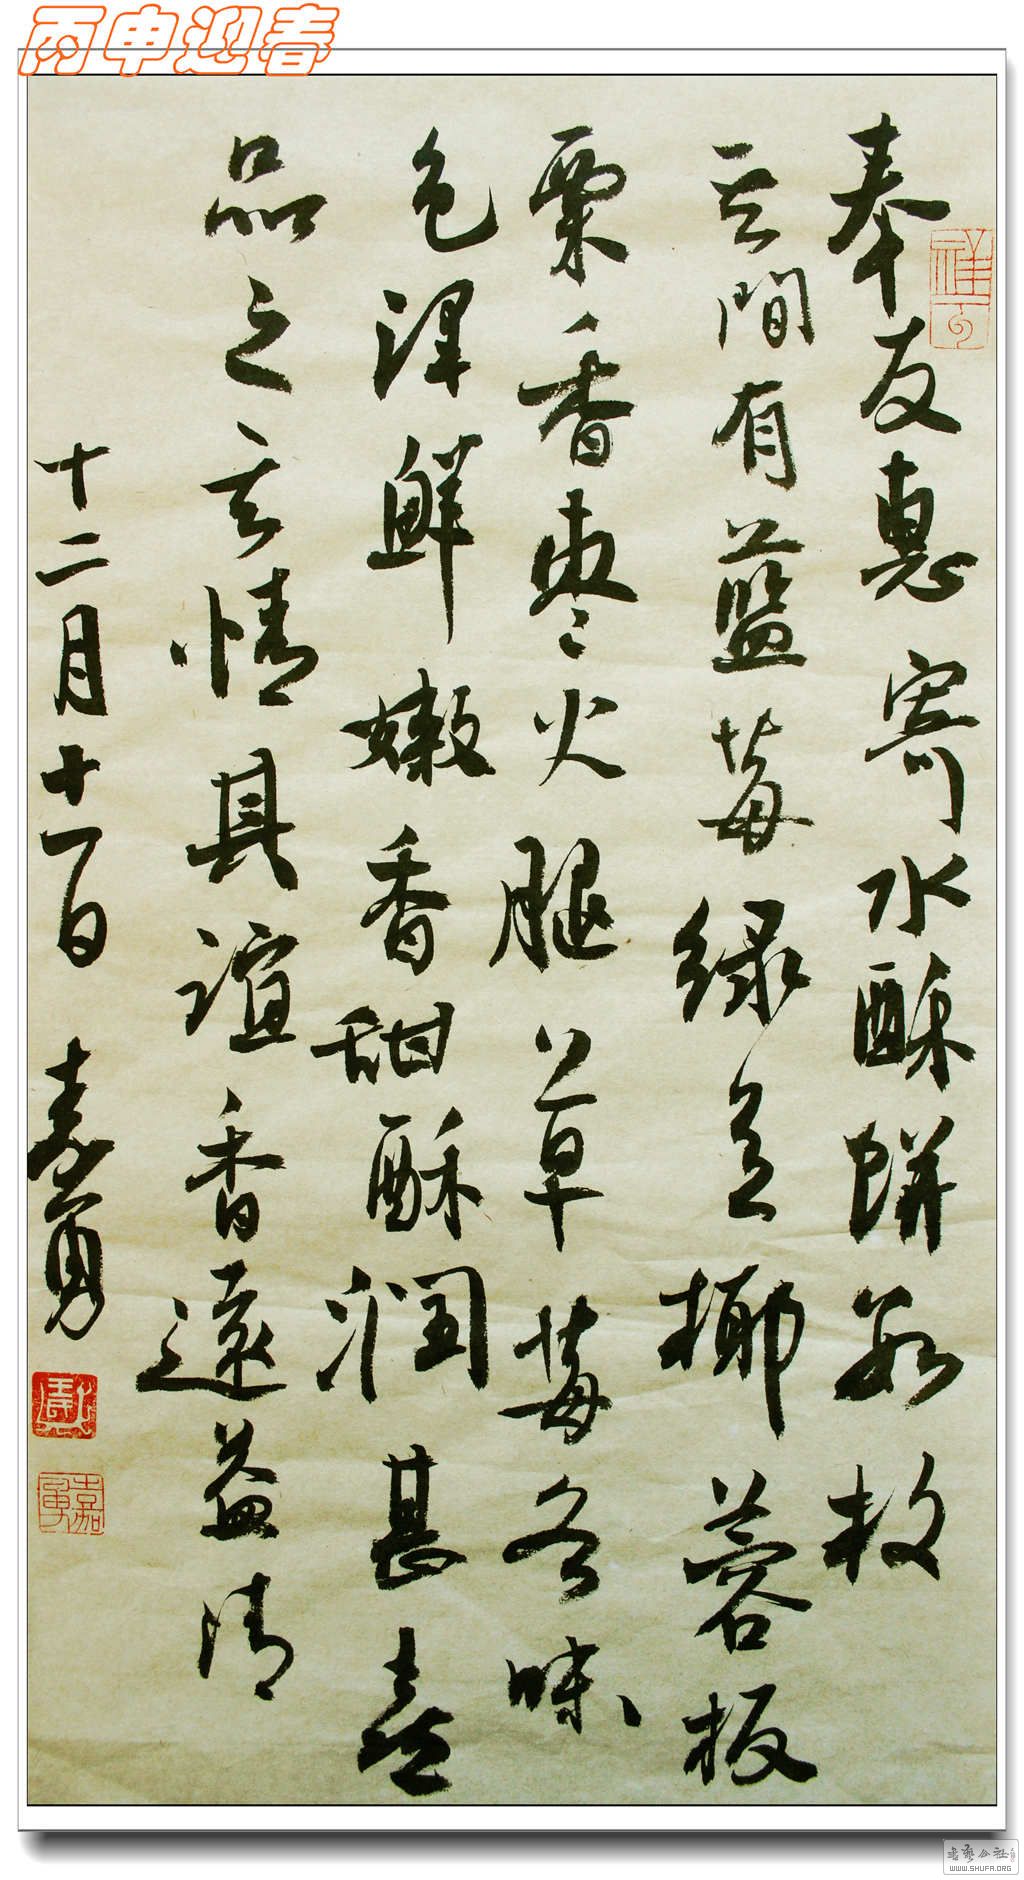 丙申迎春
奉友惠寄水酥饼数枚
其間有蓝莓绿豆椰蓉板
栗香枣火腿草莓各味
色泽鲜嫩香甜酥润甚喜
品之其情具谊香遠益清
十二月十一日 嘉勇
嘉勇
WWW.SHUFA.ORG